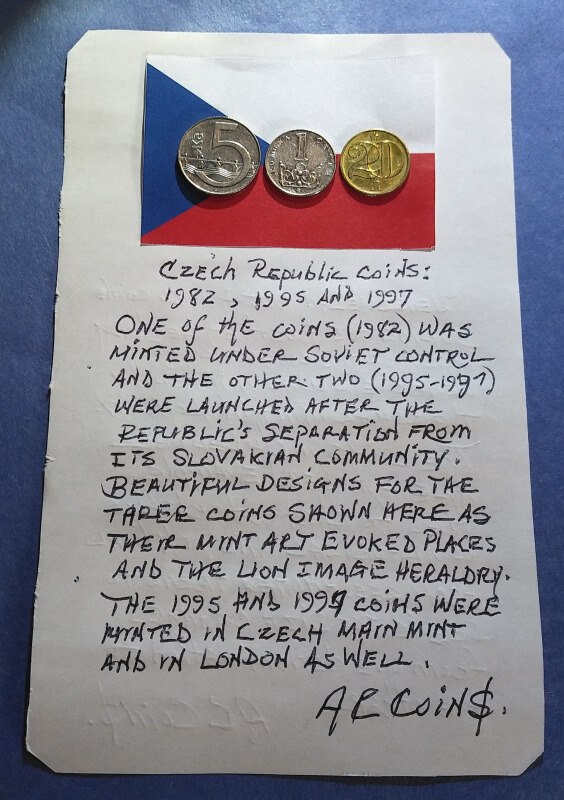 5 Kč
1
20
CZECH REPUBLIC COINS:
1982, 1995 AND 1997
ONE OF tHE COINS (1982) WAS
MINTED UNDER SOVIET CONTROL
AND THE OTHER TWO (1995-1997)
WERE LAUNCHED AFTER THE
REPUBLIC'S SEPARATION FROM
ITS SLOVAKIAN COMMUNITY.
BEAUTIFUL DESIGNS FOR THE
THREE COINS SHOWN HERE AS
THEIR MINT ART EVOKED PLACES
AND THE LION IMAGE HERALDRY.
THE 1995 AND 1997 COINS WERE
MINTED IN CZECH MAIN MINT
AND IN LONDON AS WELL.
AR COIN$.